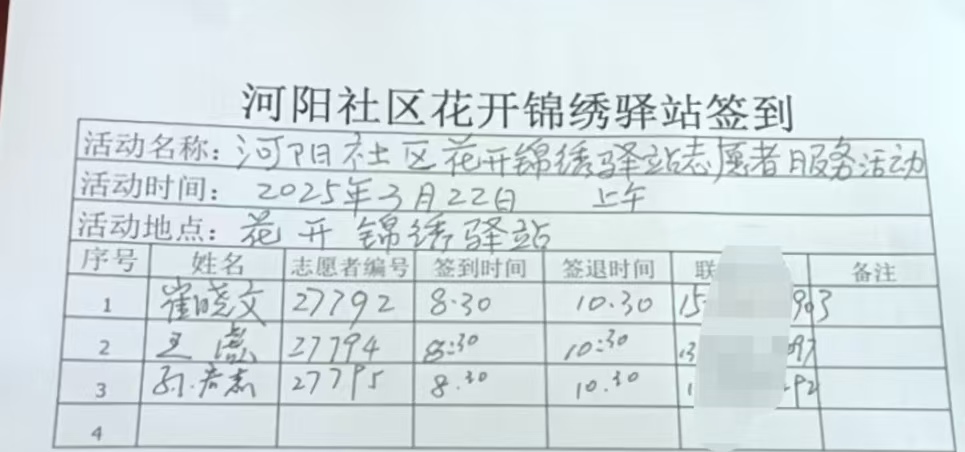 河阳社区花开锦绣驿站签到
活动名称：河阳社区花开锦绣驿站志愿者服务活动
活动时间：2025年3月22日 上午
活动地点：花开锦绣驿站
序号 姓名 志愿者编号 签到时间 签退时间 联 备注
1 崔晓文 27792 8.30 10.30 15 903
2 王 27794 8:30 10:30 13 097
3 27795 8.30 10.30 1 92
4